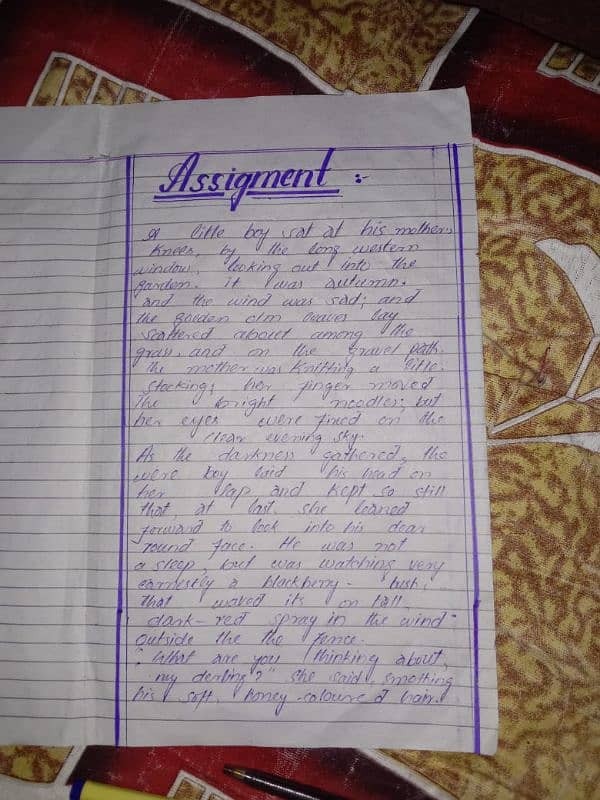 Assigment :-
A litle boy sat at his mothers
knees, by the long western
window, looking out into the
garden. it was autumn.
and the wind was sad; and
the golden elm leaves lay
scattered about among the
grass, and on the gravel path.
The mother was knitting a litle
stocking; her finger moved
The bright needles; but
her eyes were fixed on the
clear evening sky.
As the darkness gathered, the
were boy laid his head on
her lap and kept so still
that at last she leaned
forward to look into his dear
round face. He was not
a sleep, but was watching very
earnestly a blackberry - bush,
that waved its on tall,
dark-red spray in the wind
outside the the fence.
"What are you thinking about,
my derling?" she said smotting
his soft, honey-coloured hair.